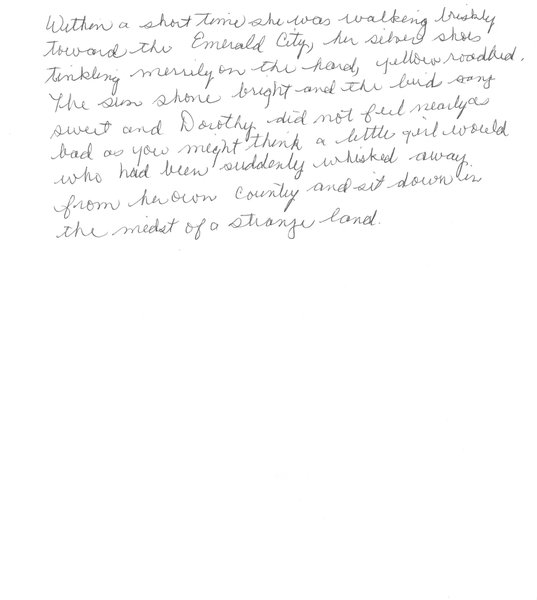 Within a short time she was walking briskly
toward the Emerald City, her silver shoes
tinkling merrily on the hard, yellow roadbed.
The sun shone bright and the bird sang
sweet and Dorothy did not feel nearly as
bad as you might think a little girl would
who had been suddenly whisked away
from her own country and sit down in
the midst of a strange land.